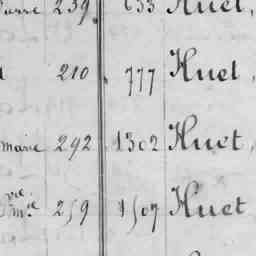 239 633 Huet,
210 777 Huet,
marie 292 1302 Huet,
vve mie 259 1507 Huet